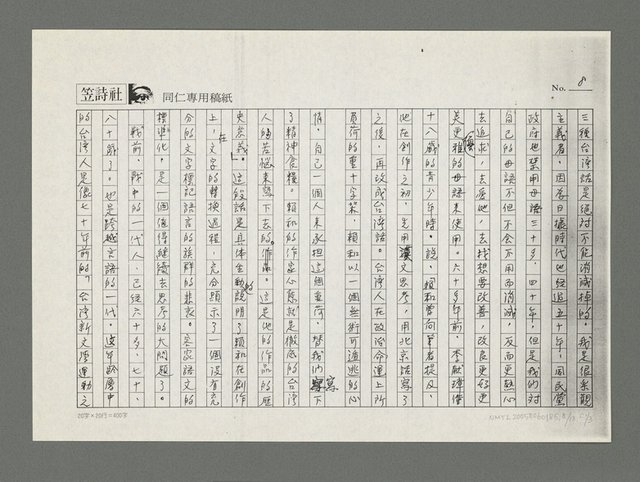 笠詩社
同仁專用稿紙
No. 8
三種台灣話是絕對不能消滅掉的。我是很樂觀
主義者，因為日據時代也經過五十年，國民黨
政府也禁用母語三十多、四十年，但是我們對
自己的母語不但不會不用而消滅，反而更熱心
去追求，去愛她，去找想要改善，改良更好更
是更雅的優母語來使用。六十多年前，李獻璋僅
十八歲的青少年時說，賴和曾向筆者提及，
他在創作之初，先用漢文思考，用北京話寫了
之後，再改成台灣話。台灣人在政治命運上所
負荷的雙十字架，賴和以一個無可逃的心
情，自己一個人來承担這個重荷，替我們寫下
了精神食糧。賴和的作家心態就是徹底的台灣
人的苦惱來下去的。這是他的作品的歷
史意義。這段話是具体生動的說明了賴和在創作
上，在文字的轉換過程，充分顯示了一個沒有充
分的文字標記語言的族群的悲哀。客家語文的
標準化，是一個值得繼續去思考的大問題了。
戰前、戰中的一代人，已經六十多、七十、
八十歲了。也是跨越語言的一代。這年齡層中
的台灣人是像七十年前的「台灣新文學運動之
20字×20行=400字